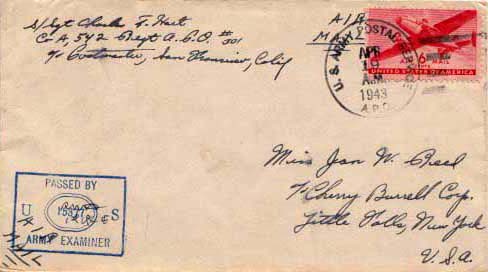 S/Sgt Charles F. Hart
Co A, 542 Regt A.P.O. # 301
c/o Postmaster, San Francisco, Calif
AIR
MAIL
U.S. ARMY POSTAL SERVICE
APR
19
A.M.
1943
A.P.O.
6
MAIL
UNITED STATES OF AMERICA
Miss Jean W. Reed
Cherry Burrell Corp.
Little Falls, New York
U.S.A.
PASSED BY
U S
ARMY EXAMINER